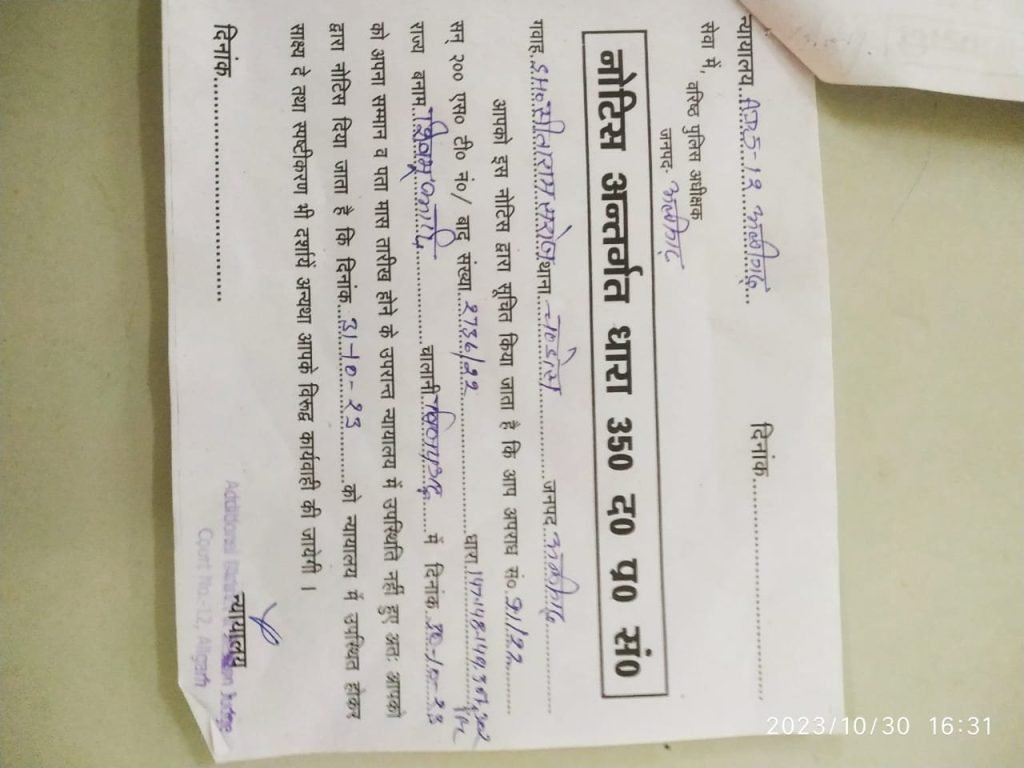 न्यायालय ADJ-12 अलीगढ़
दिनांक
सेवा में,
वरिष्ठ पुलिस अधीक्षक
जनपद- अलीगढ़
नोटिस अन्तर्गत धारा 350 द० प्र० सं०
गवाह SHO सीताराम सरोज थाना जनपद अलीगढ़
आपको इस नोटिस द्वारा सूचित किया जाता है कि आप अपराध सं० 91/22
सन् २०० एस० टी० नं०/ वाद संख्या 2736/22 धारा 147.148.149.307
राज्य बनाम चालानी में दिनांक 30-10-23
को अपना सम्मान व पता मास तारीख होने के उपरान्त न्यायालय में उपस्थिति नहीं हुए अतः आपको
द्वारा नोटिस दिया जाता है कि दिनांक 31-10-23 को न्यायालय में उपस्थित होकर
साक्ष्य दे तथा स्पष्टीकरण भी दर्शायें अन्यथा आपके विरूद्ध कार्यवाही की जायेगी ।
दिनांक
न्यायालय
Additional District & Session Judge
Court No.-12, Aligarh
2023/10/30 16:31